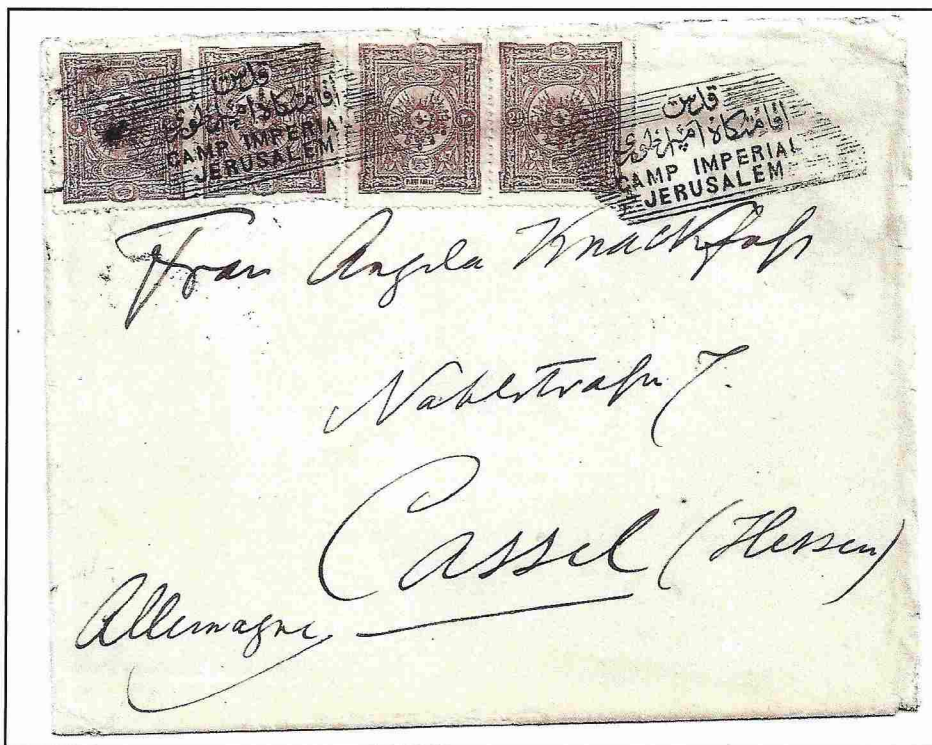 اقامتگاه امپراطوری
CAMP IMPERIAL
JERUSALEM
اقامتگاه امپراطوری
CAMP IMPERIAL
JERUSALEM
Frau Angela Knackfuß
Cassel (Hessen)
Allemagne